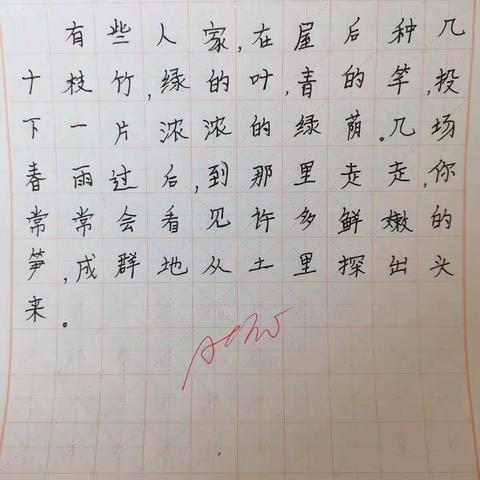 有些人家,在屋后种几
十枝竹,绿的叶,青的竿,投
下一片浓浓的绿荫。几场
春雨过后,到那里走走,你
常常会看见许多鲜嫩的
笋,成群地从土里探出头
来。